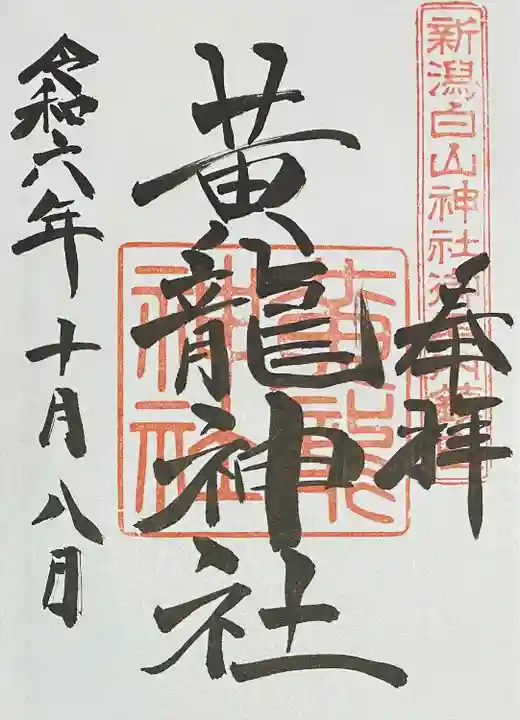 新潟白山神社御鎮
奉拝
黄龍神社
黄龍神社
令和六年十月八日